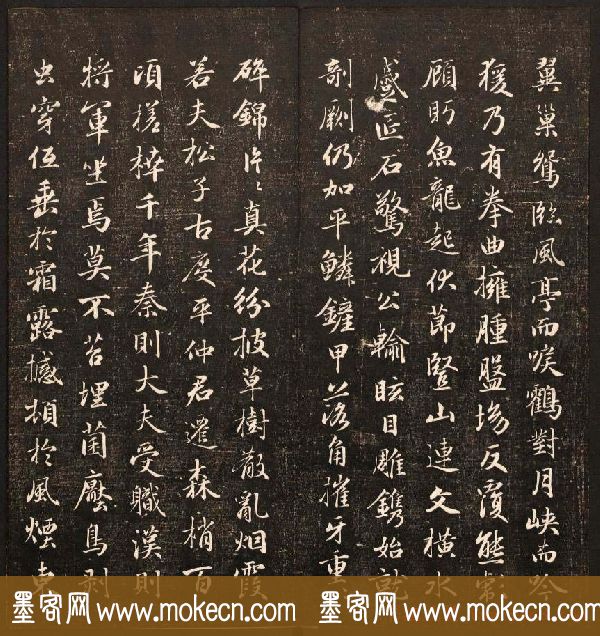 翼巢鴛臨風亭而唳鶴對月峽而吟
猨乃有拳曲擁腫盤坳反覆熊彪
顧盻魚龍起伏節豎山連文橫水
蹙匠石驚視公輸眩目雕鐫始就
剞劂仍加平鱗鏟甲落角摧牙重
碎錦片〻真花紛披草樹散亂烟霞
若夫松子古度平仲君遷森梢百
頃槎枿千年秦則大夫受職漢則
將軍坐焉莫不苔埋菌壓鳥剝
虫穿低垂於霜露撼頓於風煙東
墨客网 www.mokecn.com 墨客网 www.mokecn.com